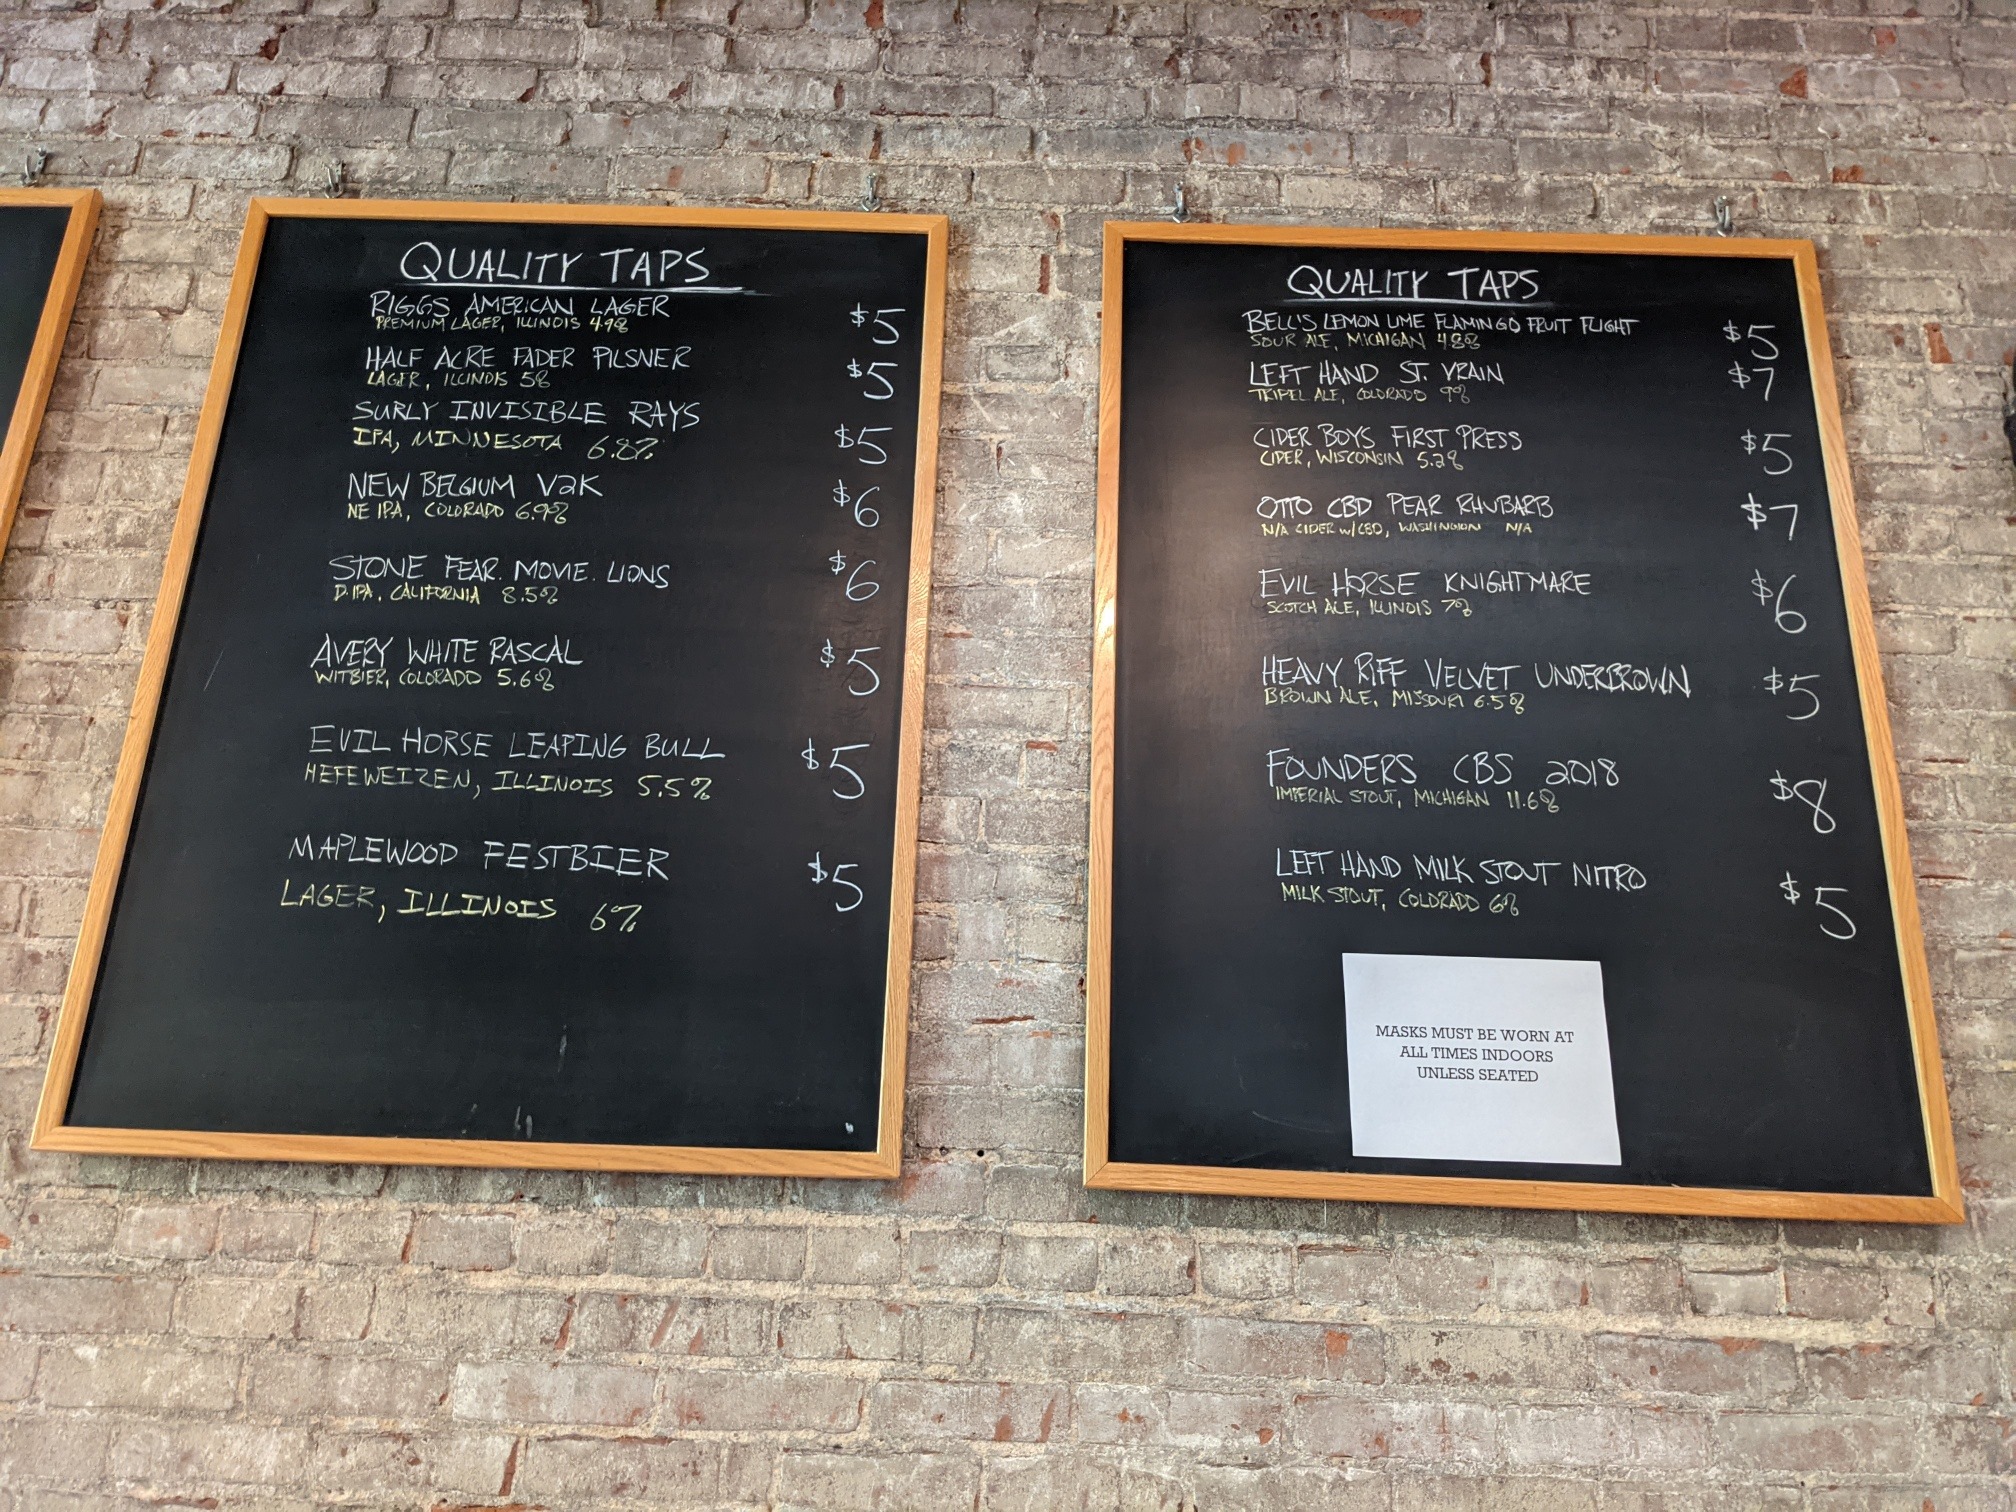 QUALITY TAPS
RIGGS AMERICAN LAGER $5
PREMIUM LAGER, ILLINOIS 4.9%
HALF ACRE FADER PILSNER $5
LAGER, ILLINOIS 5%
SURLY INVISIBLE RAYS $5
IPA, MINNESOTA 6.8%
NEW BELGIUM V2K $6
NE IPA, COLORADO 6.9%
STONE FEAR. MOVIE. LIONS $6
D.IPA, CALIFORNIA 8.5%
AVERY WHITE RASCAL $5
WITBIER, COLORADO 5.6%
EVIL HORSE LEAPING BULL $5
HEFEWEIZEN, ILLINOIS 5.5%
MAPLEWOOD FESTBIER $5
LAGER, ILLINOIS 6%
QUALITY TAPS
BELL'S LEMON LIME FLAMINGO FRUIT FLIGHT $5
SOUR ALE, MICHIGAN 4.8%
LEFT HAND ST. VRAIN $7
TRIPEL ALE, COLORADO 9%
CIDER BOYS FIRST PRESS $5
CIDER, WISCONSIN 5.2%
OTTO CBD PEAR RHUBARB $7
N/A CIDER W/CBD, WASHINGTON N/A
EVIL HORSE KNIGHTMARE $6
SCOTCH ALE, ILLINOIS 7%
HEAVY RIFF VELVET UNDERBROWN $5
BROWN ALE, MISSOURI 6.5%
FOUNDERS CBS 2018 $8
IMPERIAL STOUT, MICHIGAN 11.6%
LEFT HAND MILK STOUT NITRO $5
MILK STOUT, COLORADO 6%
MASKS MUST BE WORN AT
ALL TIMES INDOORS
UNLESS SEATED